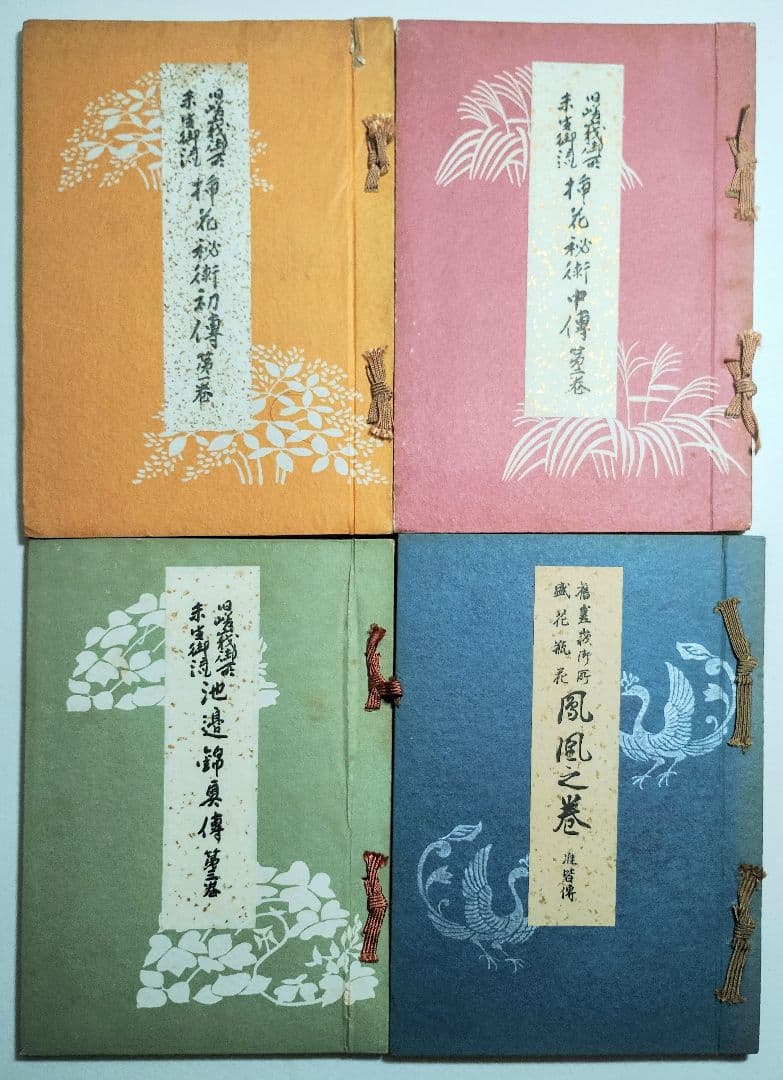 旧嵯峨御所
未生御流
挿花秘術初傳 第一巻
旧嵯峨御所
未生御流
挿花秘術中傳 第二巻
旧嵯峨御所
未生御流
池邊錦奥傳 第三巻
舊嵯峨御所
盛花瓶花
鳳凰之巻 准皆傳